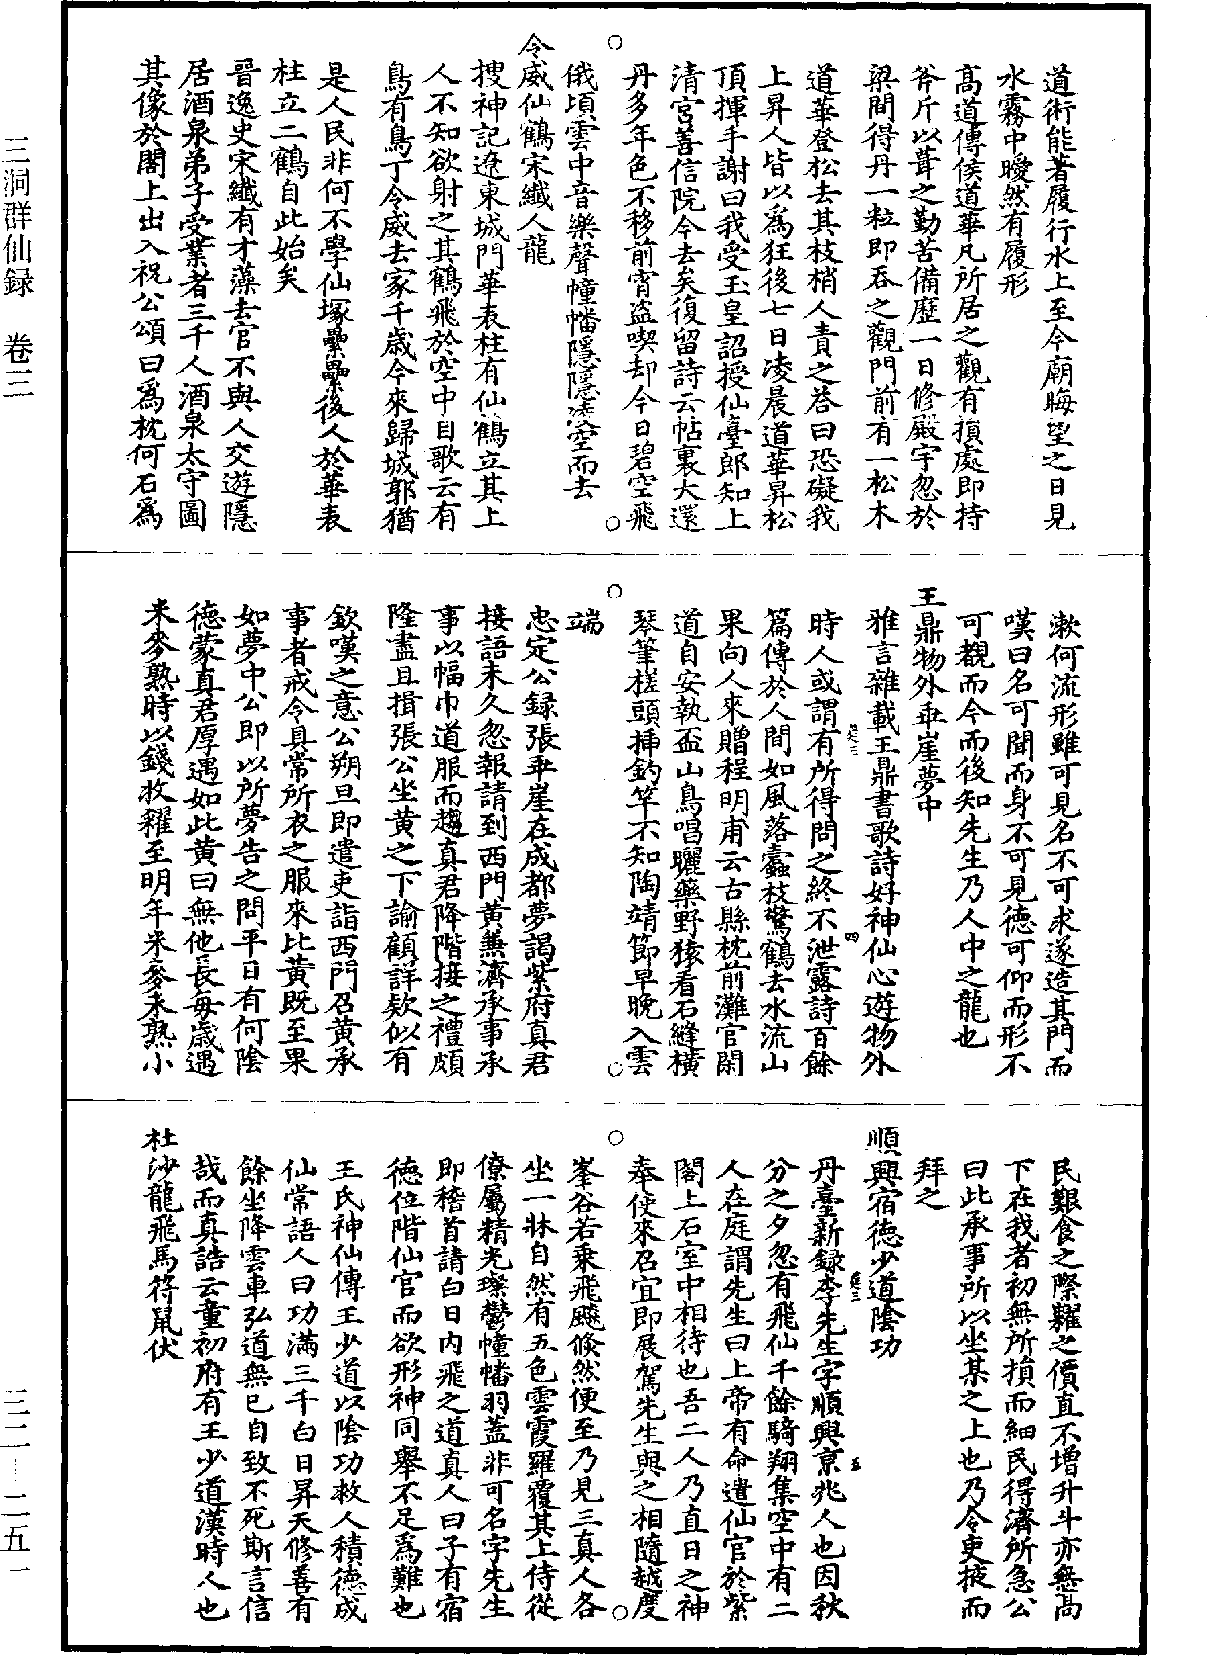 道術能著履行水上至今廟晦望之日見
水霧中曖然有履形
高道傳侯道華凡所居之觀有損處即持
斧斤以葺之勤苦備歷一日修殿宇忽於
梁間得丹一粒即吞之觀門前有一松木
道華登松去其枝梢人責之荅曰恐礙我
上昇人皆以爲狂後七日凌晨道華昇松
頂揮手謝曰我受玉皇詔授仙臺郎知上
清宮善信院今去矣復留詩云帖裏大還
丹多年色不移前宵盜喫却今日碧空飛
俄頃雲中音樂聲幢幡隱隱凌空而去
令威仙鶴宋纖人龍
搜神記遼東城門華表柱有仙鶴立其上
人不知欲射之其鶴飛於空中自歌云有
鳥有鳥丁令威去家千歲今來歸城郭猶
是人民非何不學仙塚纍纍後人於華表
柱立二鶴自此始矣
晉逸史宋纖有才藻去官不與人交遊隱
居酒泉弟子受業者三千人酒泉太守圖
其像於閣上出入祝公頌曰爲枕何石爲
漱何流形雖可見名不可求遂造其門而
嘆曰名可聞而身不可見德可仰而形不
可覩而今而後知先生乃人中之龍也
王鼎物外乖崖夢中
雅言雜載王鼎書歌詩好神仙心遊物外
時人或謂有所得問之終不泄露詩百餘
篇傳於人間如風落蠹枝驚鶴去水流山
果向人來贈程明甫云古縣枕前灘官閑
道自安執盃山鳥唱曬藥野猿看石縫橫
琴筆槎頭挿釣竿不知陶靖節早晚入雲
端
忠定公錄張乖崖在成都夢謁紫府真君
接語未久忽報請到西門黃兼濟承事承
事以幅巾道服而趨真君降階接之禮頗
隆盡且揖張公坐黃之下諭顧詳欵似有
欽嘆之意公朔旦即遣吏詣西門召黃承
事者戒令具常所衣之服來比黃既至果
如夢中公即以所夢告之問平日有何陰
德蒙真君厚遇如此黃曰無他長每歲遇
米麥熟時以錢收糴至明年米麥未熟小
民艱食之際糶之價直不增升斗亦無高
下在我者初無所損而細民得濟所急公
曰此承事所以坐某之上也乃令吏掖而
拜之
順興宿德少道陰功
丹臺新錄李先生字順興京兆人也因秋
分之夕忽有飛仙千餘騎翔集空中有二
人在庭謂先生曰上帝有命遣仙官於紫
閣上石室中相待也吾二人乃直日之神
奉使來召宜即展駕先生與之相隨越度
峯谷若乘飛飈倏然便至乃見三真人各
坐一牀自然有五色雲霞羅覆其上侍從
僚屬精光璨鬱幢幡羽蓋非可名字先生
即稽首請白日内飛之道真人曰子有宿
德位階仙官而欲形神同舉不足爲難也
王氏神仙傳王少道以陰功救人積德成
仙常語人曰功滿三千白日昇天修善有
餘坐降雲車弘道無已自致不死斯言信
哉而真誥云童初府有王少道漢時人也
杜沙龍飛馬符鼠伏
三洞群仙録　卷三
三二—二五一